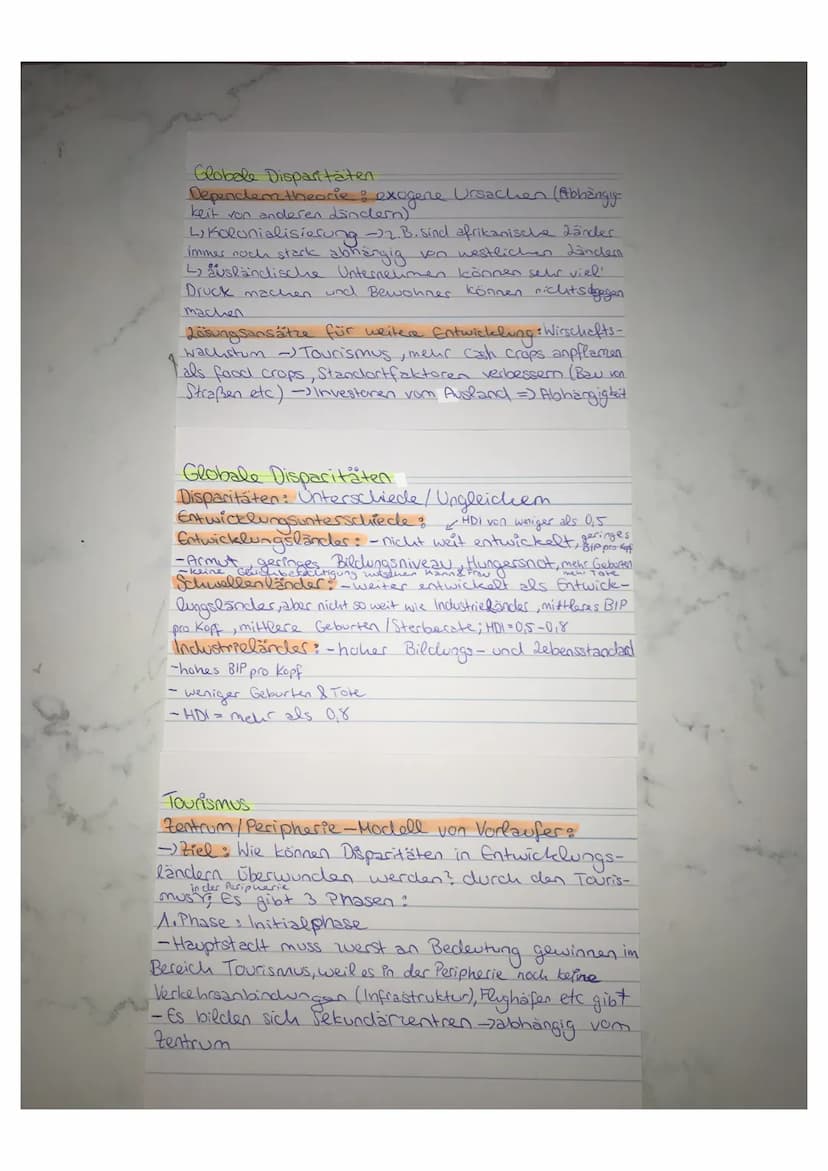 Globale Disparitäten
Dependenztheorie: exogene Ursachen (Abhängig-
keit von anderen Ländern)
↳ Kolonialisierung → z.B. sind afrikanische Länder
immer noch stark abhängig von westlichen Ländern
↳ ausländische Unternehmen können sehr viel
Druck machen und Bewohner können nichts dagegen
machen
Lösungsansätze für weitere Entwicklung: Wirschafts-
wachstum → Tourismus, mehr cash crops anpflanzen
als food crops, Standortfaktoren verbessern (Bau von
Straßen etc) → Investoren vom Ausland => Abhängigkeit
Globale Disparitäten
Disparitäten: Unterschiede/Ungleichem
Entwicklungsunterschiede: ↙ HDI von weniger als 0,5
Entwicklungsländer: - nicht weit entwickelt, geringes BIP pro Kopf
- Armut, geringes Bildungsniveau, Hungersnot, mehr Geburten
- keine Gleichberechtigung zwischen Mann & Frau mehr Tote
Schwellenländer: - weiter entwickelt als Entwick-
lungsländer, aber nicht so weit wie Industrieländer, mittleres BIP
pro Kopf, mittlere Geburten/Sterberate; HDI=0,5-0,8
Industrieländer: - hoher Bildungs- und Lebensstandard
- hohes BIP pro Kopf
- weniger Geburten & Tote
- HDI = mehr als 0,8
Tourismus
Zentrum/Peripherie-Modell von Vorlaufer:
→ Ziel: Wie können Disparitäten in Entwicklungs-
ländern überwunden werden? durch den Touris-
in der Peripherie
mus; Es gibt 3 Phasen:
1. Phase: Initialphase
- Hauptstadt muss zuerst an Bedeutung gewinnen im
Bereich Tourismus, weil es in der Peripherie noch keine
Verkehrsanbindungen (Infrastruktur), Flughäfen etc gibt
- Es bilden sich Sekundärzentren → abhängig vom
Zentrum